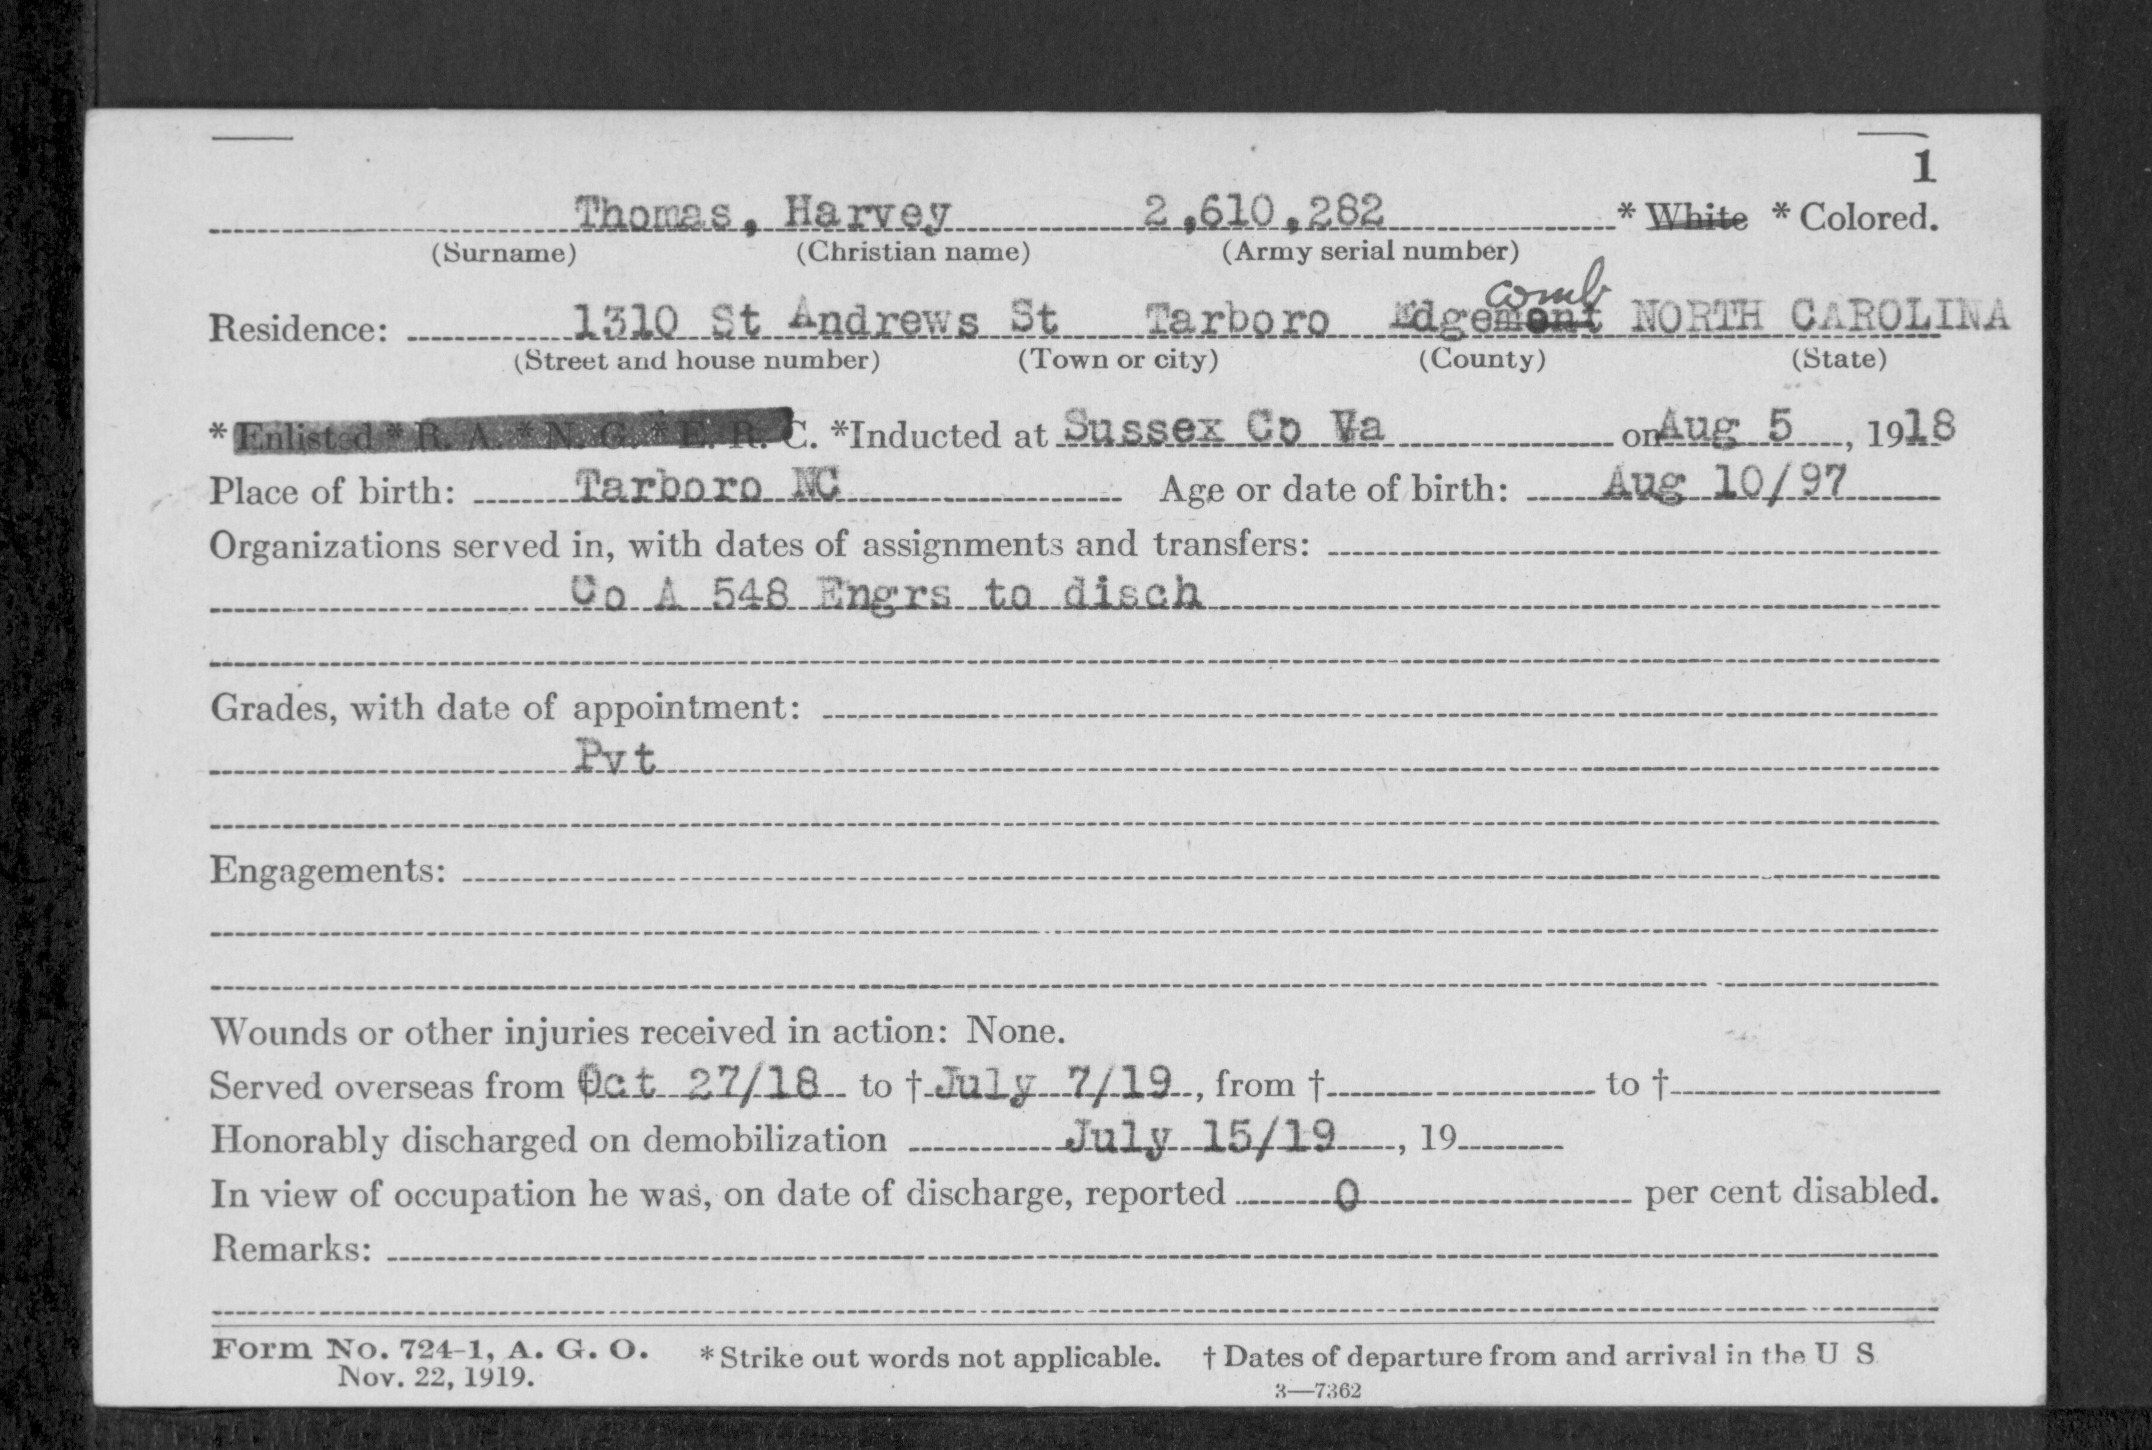 1
Thomas, Harvey 2,610,282 * White * Colored.
(Surname) (Christian name) (Army serial number)
comb
Residence: 1310 St Andrews St Tarboro Edgemont NORTH CAROLINA
(Street and house number) (Town or city) (County) (State)
* Enlisted * R. A. * N. G. * E. R. C. *Inducted at Sussex Co Va on Aug 5, 1918
Place of birth: Tarboro NC Age or date of birth: Aug 10/97
Organizations served in, with dates of assignments and transfers:
Co A 548 Engrs to disch
Grades, with date of appointment:
Pvt
Engagements:
Wounds or other injuries received in action: None.
Served overseas from Oct 27/18 to † July 7/19, from † to †
Honorably discharged on demobilization July 15/19, 19
In view of occupation he was, on date of discharge, reported 0 per cent disabled.
Remarks:
Form No. 724-1, A. G. O. * Strike out words not applicable. † Dates of departure from and arrival in the U S
Nov. 22, 1919.
3—7362